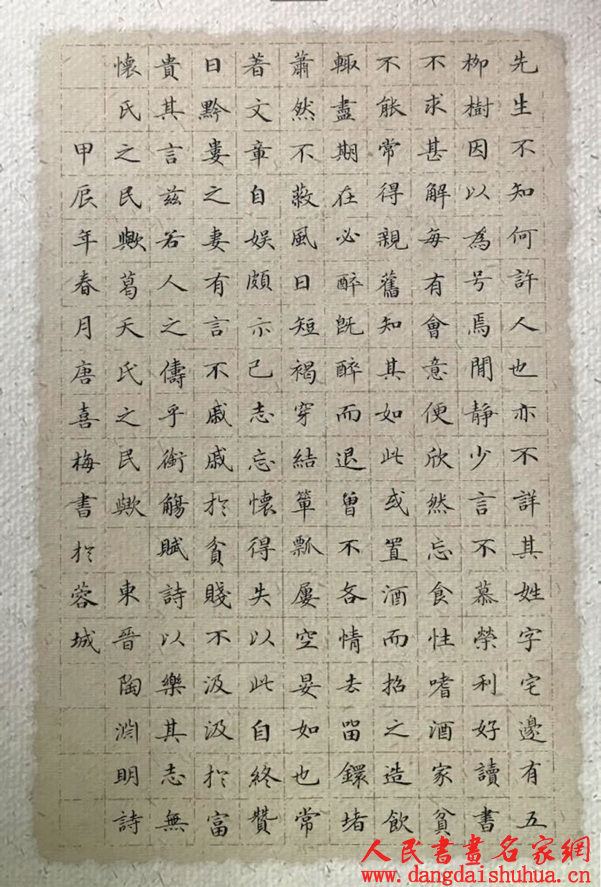 先生不知何許人也亦不詳其姓字宅邊有五
柳樹因以為号焉閒靜少言不慕榮利好讀書
不求甚解每有會意便欣然忘食性嗜酒家貧
不能常得親舊知其如此或置酒而招之造飲
輒盡期在必醉既醉而退曾不各情去留鐶堵
蕭然不蔽風日短褐穿結簞瓢屢空晏如也常
著文章自娱頗示己志忘懷得失以此自終贊
日黔婁之妻有言不戚戚於貧賤不汲汲於富
貴其言兹若人之儔乎銜觴賦詩以樂其志無
懷氏之民歟葛天氏之民歟 東晉陶淵明詩
甲辰年春月唐喜梅書於蓉城
人民書畫名家網
www.dangdaishuhua.cn